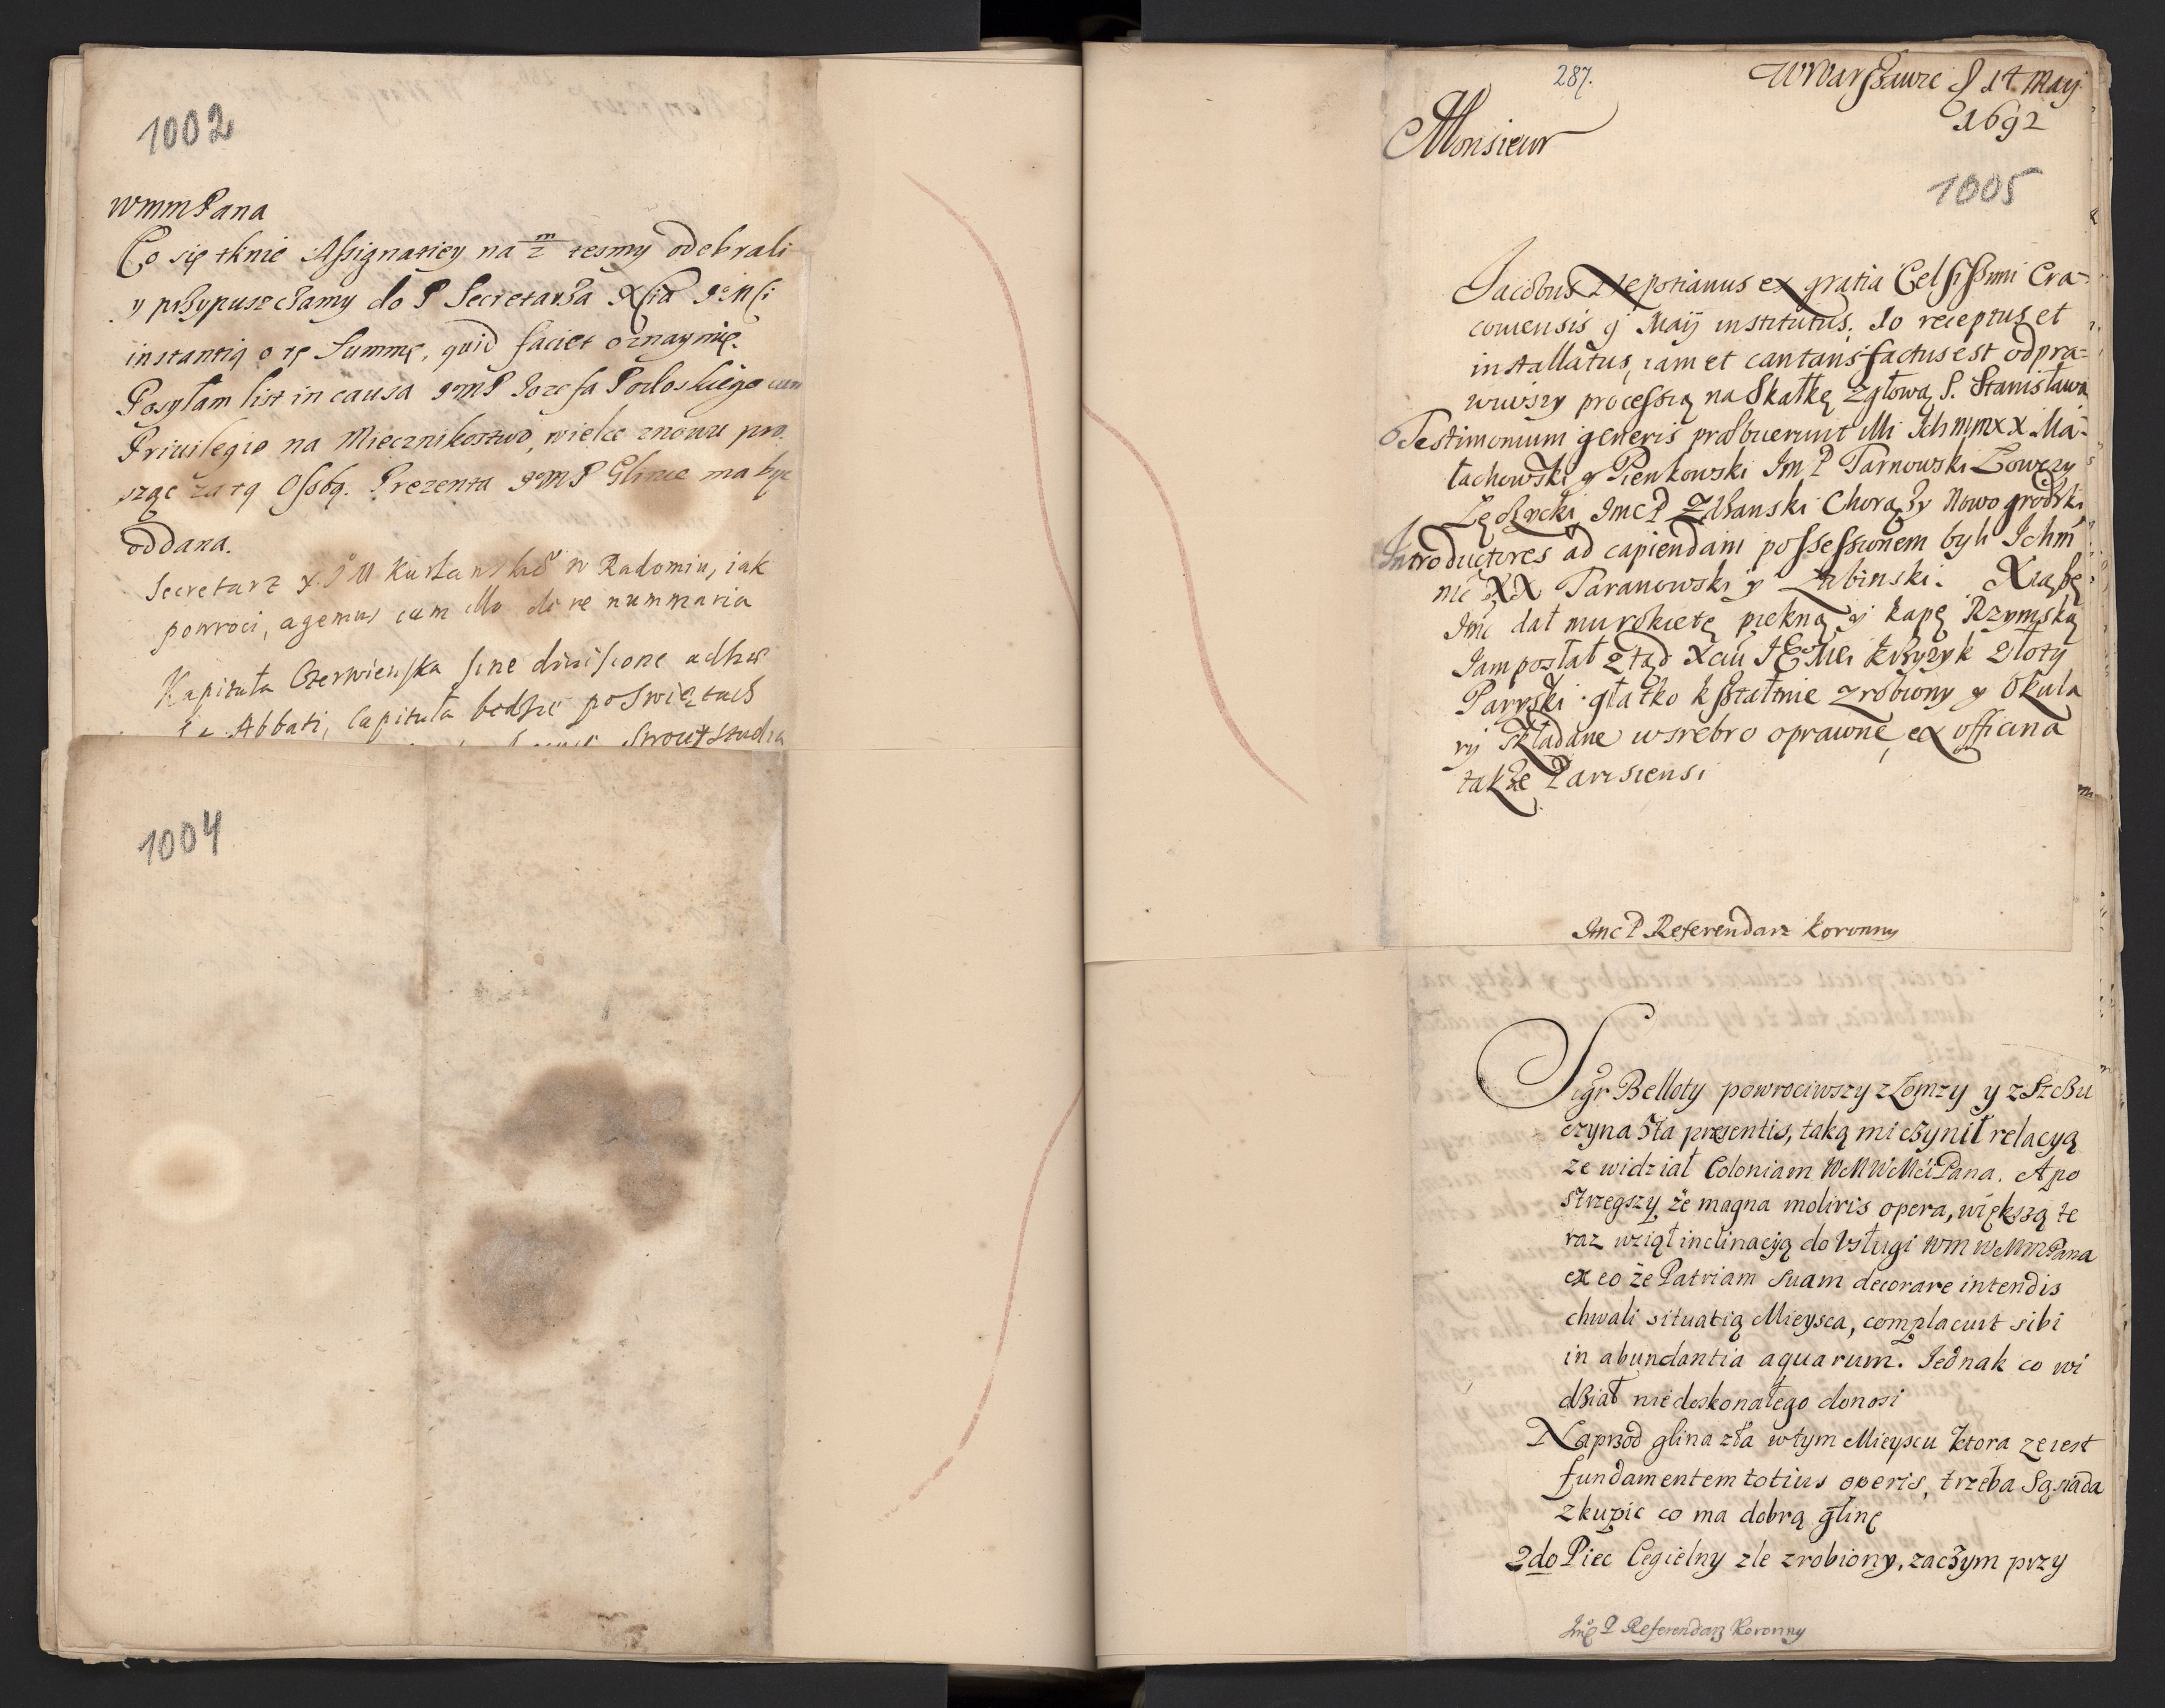 1002
WMMPana
Co się tknie Assignatiey na m/2 tesmy odebrali
y przypuszczamy do P Secretarza Xcia JeMci
instantią o tę Summę, quid faciet oznaymię.
Posyłam list in causa JmP Jozefa Podoskiego cum
Priuilegio na Miecznikostwo, wielce znowu pro
sząc za tą Osobą. Prezenta JmP Glince ma byc
oddana.
Secretarz X. J M w Radomiu, iak
powroci, agemus cum illo de re nummaria
Kapituła Czerwienska sine diuisione adhuc
Abbati, Capituła bedzie po Swiętach
1004
287.
w Warszawie d 14 Maij
1692
Monsieur
1005
Jacobus ex gratia Celsissimi Cra-
couiensis 9 Maij institutus. 10 receptus et
installatus, iam et cantans factus est odpra-
wiwszy processią na Skałkę z głową S. Stanisława
Testimonium generis prœbuerunt illi Ichmmxx Ma-
łachowski y Pienkowski Im P Tarnowski Łowczy
Imc P Chorąży Nowogrodzki
Introductores ad capiendam possessionem byli Ichm
XX Taranowski y Łubinski. Xiąże
Imć dał mu rokietę piękną y kapę Rzymską
Jam posłał ztąd Xciu krzyzyk złoty
Paryski gładko kształtnie zrobiony y Okula
ry składane w srebro oprawne, ex officina
także Parisiensi
Imc P Referendarz Koronny
Sigr Belloty powrociwszy z Łomzy y z Szczu
czyna 5ta presentis, taką mi czynił relacyą
ze widział Coloniam WMWMciPana. A po
strzegszy że magna moliris opera, większą te
raz wziął inclinacyą do Vsługi WMWMMPana
ex eo że Patriam suam decorare intendis
chwali situatią Mieysca, complacuit sibi
in abundantia aquarum. Jednak co wi
dział niedoskonałego donosi
Naprzod glina zła w tym Mieyscu ktora ze iest
fundamentem totius operis, trzeba Sąsiada
zkupic co ma dobrą glinę
2do Piec Cegielny zle zrobiony, zaczym przy
Jmć P Referendarz Koronny